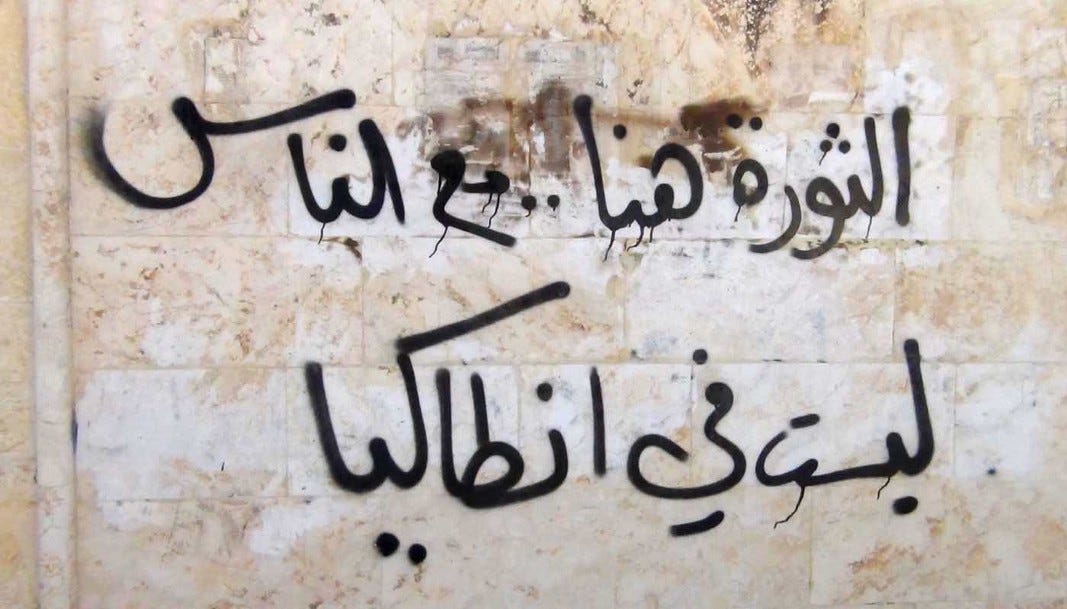 الثورة هنا .. مع الناس
ليست في انطاكيا